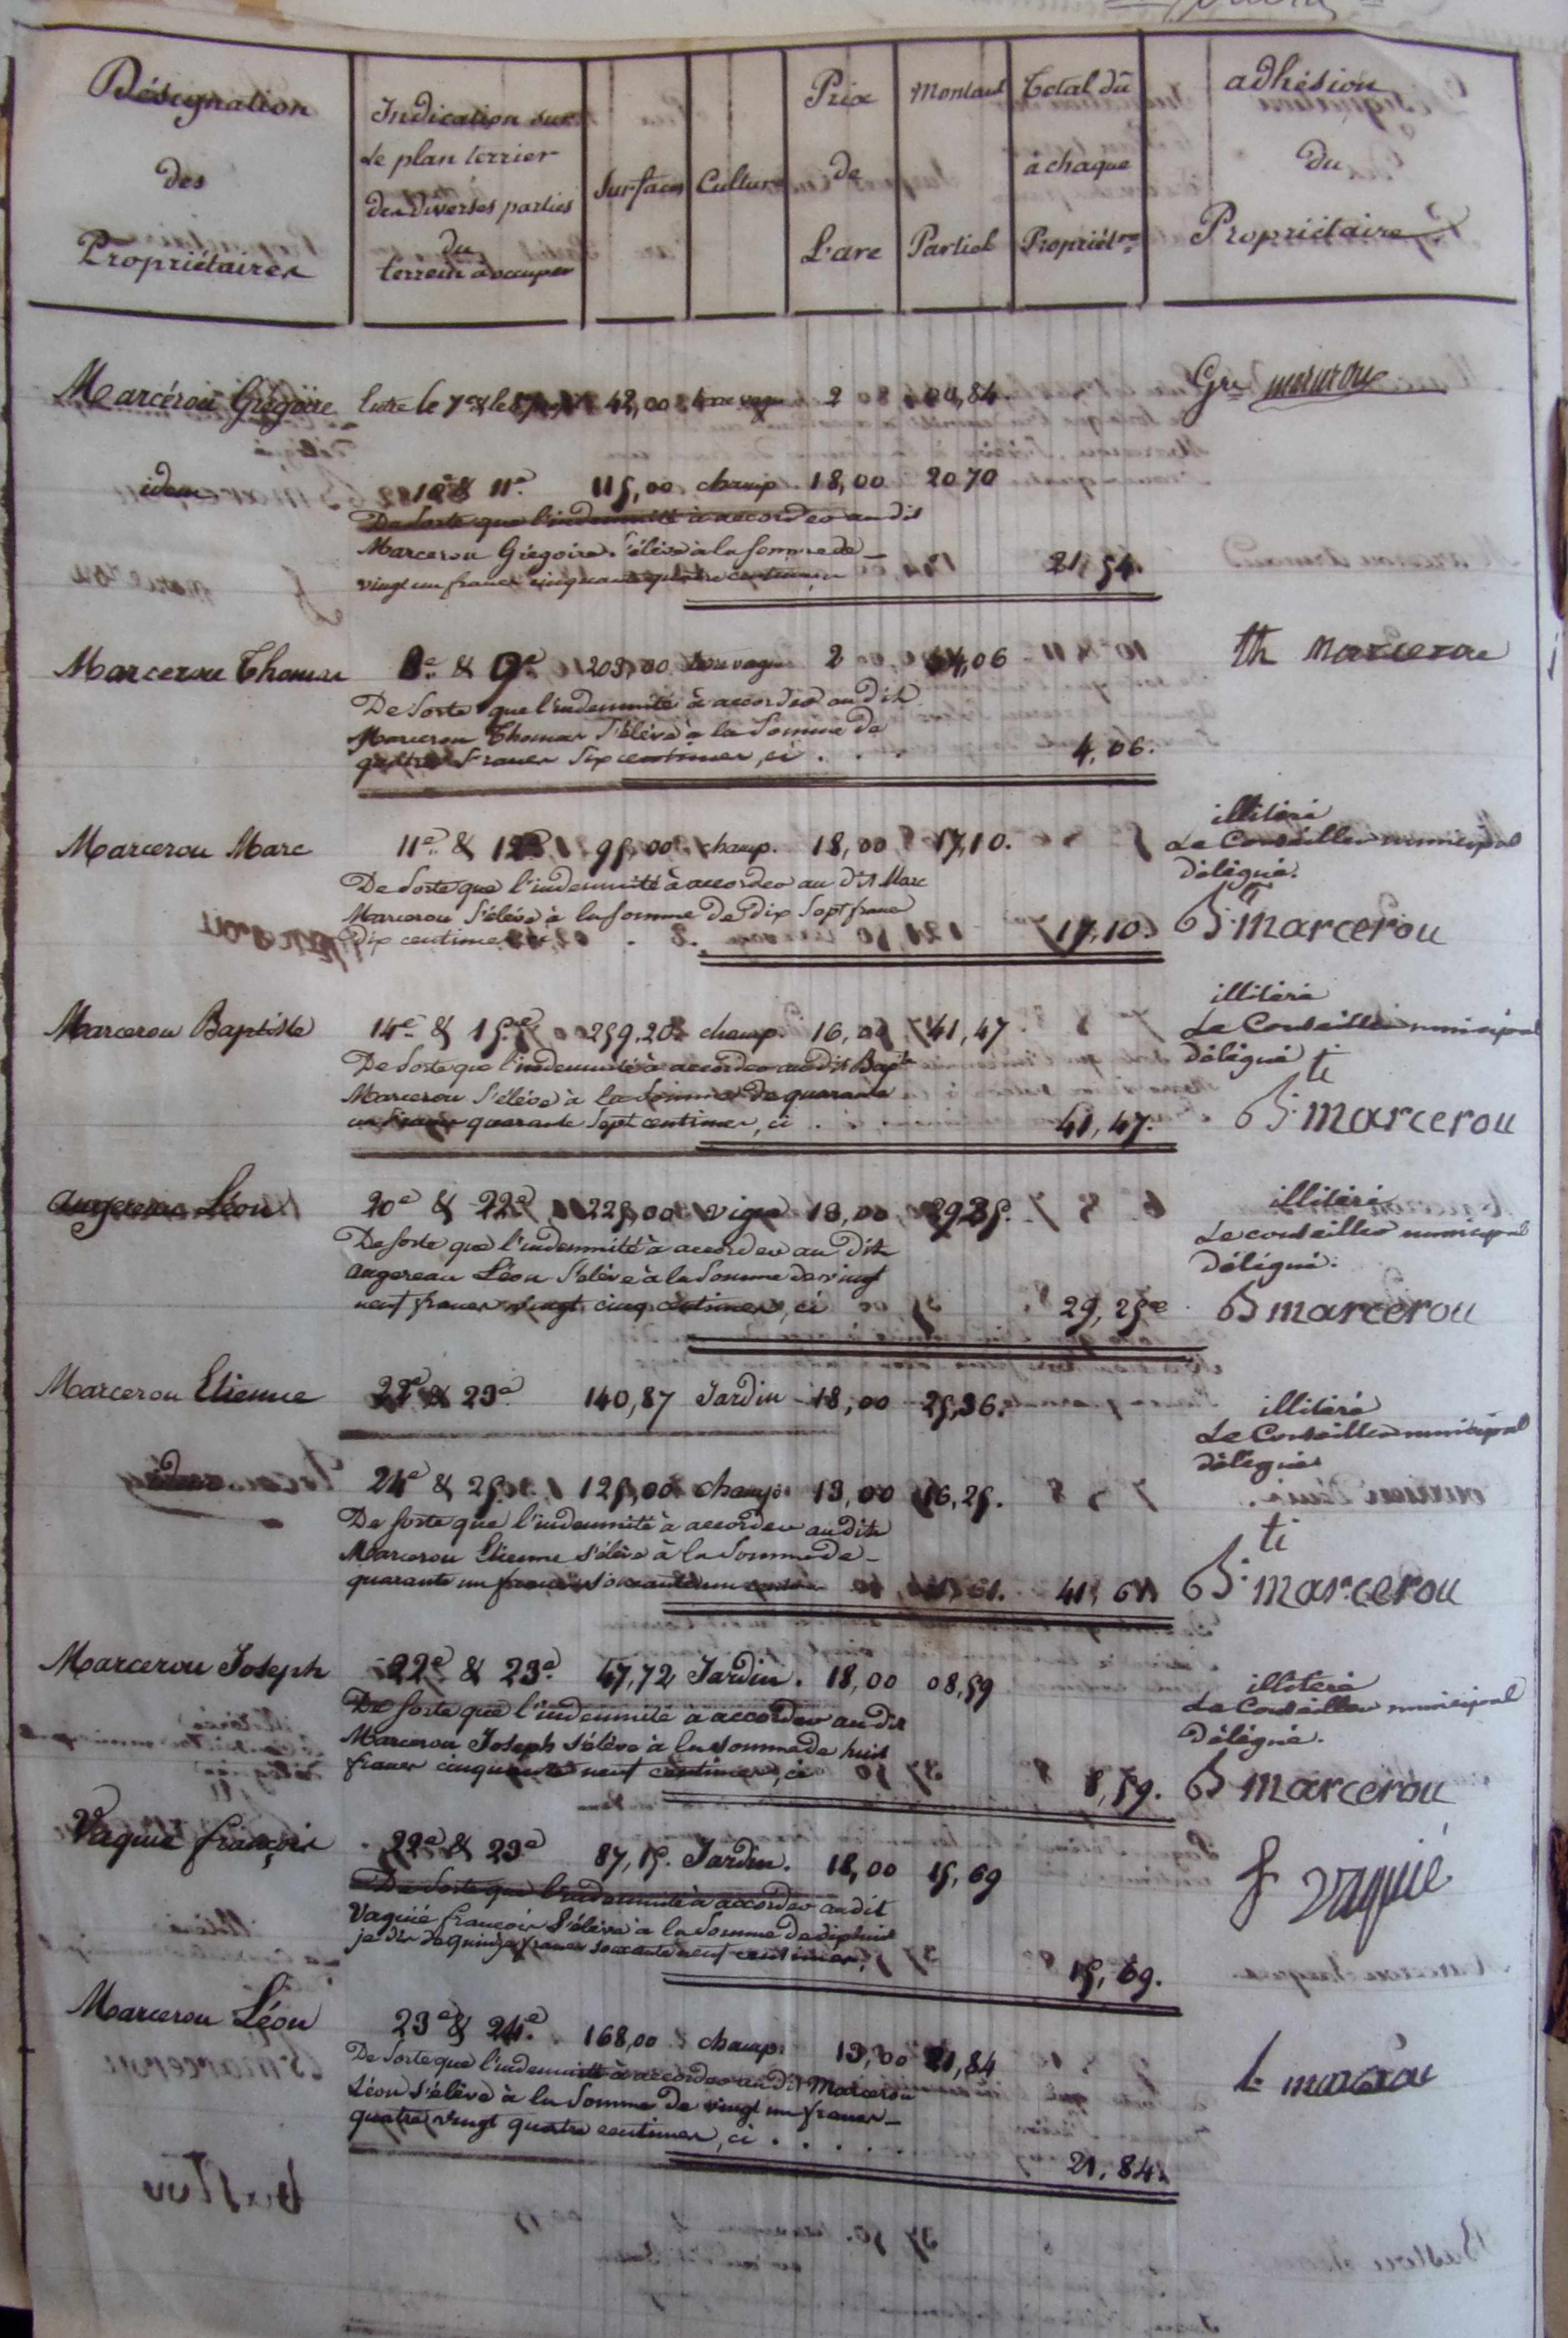 Désignation
des
Propriétaires
Indication sur
Le plan terrier
des diverses parties
du
terrein à occuper
Surfaces
Culture
Prix
de
L'are
Montant
Partiel
Total dû
à chaque
Propriét.re
adhésion
du
Propriétaire
Marcérou Grégoire Entre le 7e & le 42,00 terre vague 2 00,84. Gre
idem 10e & 11e 115,00 champ. 18,00 20 70
De Sorte que l'indemnité à accorder au dit
Marcerou Grégoire S'élève à la Somme de
vingt un francs cinquante quatre centimes 21,54.
Marcerou Thomas 8e & 9e 203,00 terre vague 2 04,06 th marcerou
De Sorte que l'indemnité à accorder au dit
Marcerou Thomas S'élève à la Somme de
quatre Francs Six centimes, ci . . . 4,06.
Marcerou Marc 11e & 12e 95,00 champ. 18,00 17,10. illitéré
Le Conseiller municipal
délégué.
De Sorte que l'indemnité à accorder au dit Marc
Marcerou S'élève à la Somme de dix Sept francs
dix centimes 17,10. B.ti marcerou
Marcerou Baptiste 14e & 15e 259,20 champ. 16,00 41,47 illitéré
Le Conseiller municipal
délégué
De Sorte que l'indemnité à accorder au dit Bapte
Marcerou S'élève à la Somme de quarante
un Francs quarante Sept centimes, ci . . . 41,47. B.ti marcerou
Angereau Léon 20e & 22e 225,00 vigne 13,00 29 25. illitéré
Le conseiller municipal
délégué.
De Sorte que l'indemnité à accorder au dit
Angereau Léon S'élève à la Somme de vingt
neuf francs vingt cinq centimes, ci 29,25 B marcerou
Marcerou Etienne 22e & 23e 140,87 Jardin 18,00 25,36. illitéré
Le Conseiller municipal
délégué
idem 24e & 25e 125,00 champ. 13,00 16,25.
De Sorte que l'indemnité à accorder au dit
Marcerou Etienne s'élève à la Somme de
quarante un francs soixante un centimes 41,61. 41,61 B.ti marcerou
Marcerou Joseph 22e & 23e 47,72 Jardin. 18,00 08,59 illitéré
Le Conseiller municipal
délégué.
De Sorte que l'indemnité à accorder au dit
Marcerou Joseph s'élève à la somme de huit
francs cinquante neuf centimes, ci 8,59. B marcerou
Vaquié françois 22e & 23e 87,15. Jardin. 18,00 15,69 f vaquié
De Sorte que l'indemnité à accorder au dit
Vaquié françois S'élève à la Somme de dix huit
je dis de quinze francs soixante neuf centimes. 15,69.
Marcerou Léon 23e & 24e 168,00 champ. 13,00 21,84 L marcerou
De Sorte que l'indemnité à accorder au dit Marcerou
Léon s'élève à la Somme de vingt un francs
quatre vingt quatre centimes, ci . . . . . 21,84.